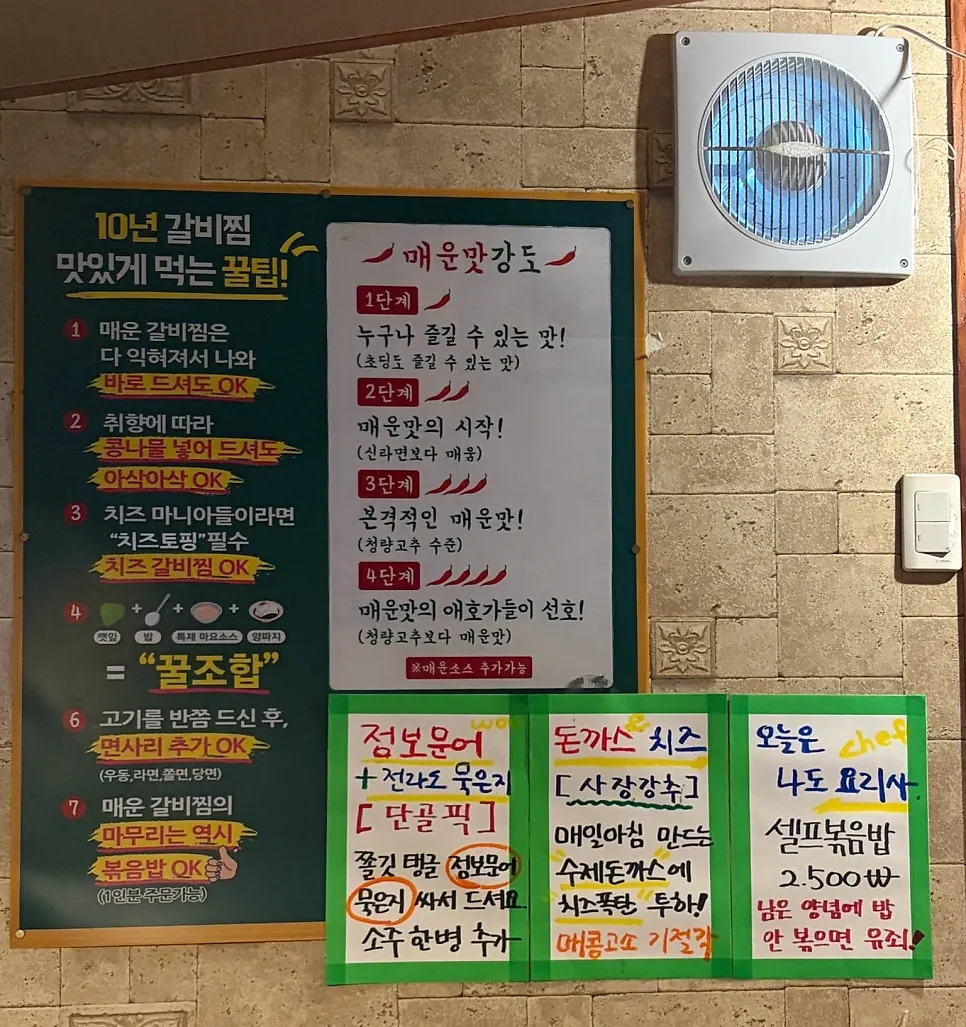 10년 갈비찜
맛있게 먹는 꿀팁!
1 매운 갈비찜은
다 익혀져서 나와
바로 드셔도 OK
2 취향에 따라
콩나물 넣어 드셔도
아삭아삭 OK
3 치즈 마니아들이라면
"치즈토핑"필수
치즈 갈비찜 OK
4 + + +
깻잎 밥 특제 마요소스 양파지
= "꿀조합"
6 고기를 반쯤 드신 후,
면사리 추가 OK
(우동,라면,쫄면,당면)
7 매운 갈비찜의
마무리는 역시
볶음밥 OK
(1인분 주문가능)
매운맛강도
1단계
누구나 즐길 수 있는 맛!
(초딩도 즐길 수 있는 맛)
2단계
매운맛의 시작!
(신라면보다 매움)
3단계
본격적인 매운맛!
(청량고추 수준)
4단계
매운맛의 애호가들이 선호!
(청량고추보다 매운맛)
※매운소스 추가가능
정보문어 wow
+ 전라도 묵은지
[단골픽]
쫄깃 탱글 정보문어
묵은지 싸서 드셔요.
소주 한병 추가
돈까스 & 치즈
[사장강추]
매일아침 만드는
수제돈까스에
치즈폭탄 투하!
매콤고소 기절각
오늘은 chef
나도 요리사.
셀프볶음밥
2.500₩
남은 양념에 밥
안 볶으면 유죄!